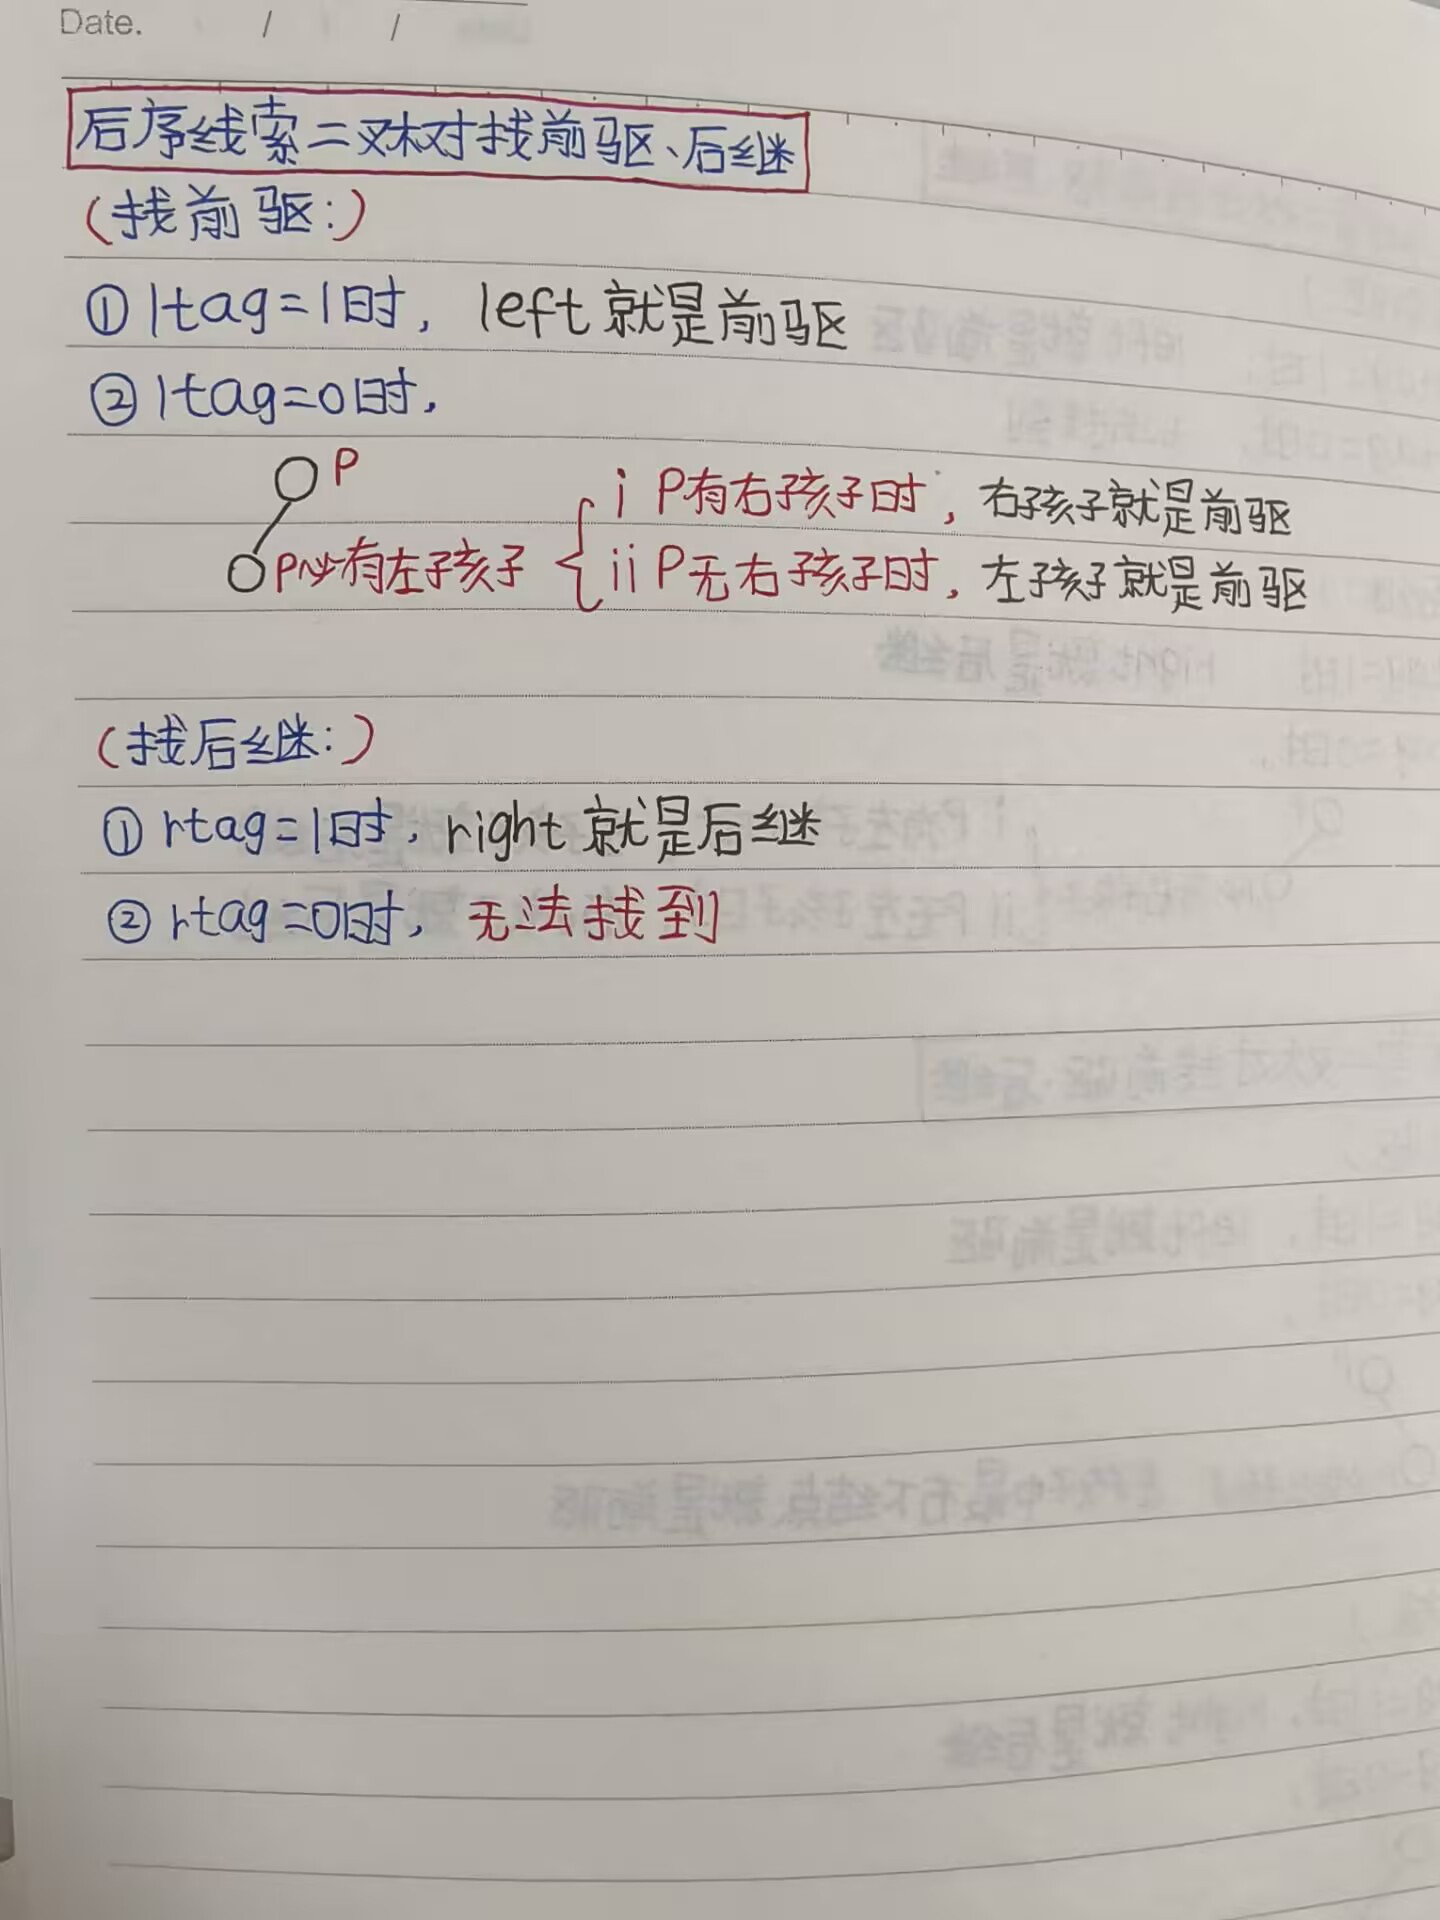 Date. / /
后序线索二叉树对找前驱、后继
(找前驱:)
① ltag=1时, left就是前驱
② ltag=0时,
P
i P有右孩子时, 右孩子就是前驱
P必有左孩子
ii P无右孩子时, 左孩子就是前驱
(找后继:)
① rtag=1时, right就是后继
② rtag=0时, 无法找到